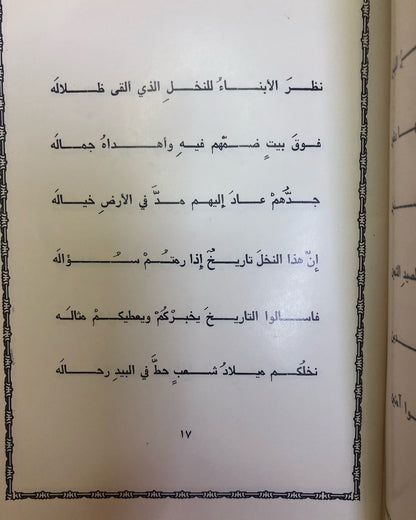 نظرَ الأبناءُ للنخلِ الذي ألقى ظلالَه
فوقَ بيتٍ ضمّهم فيهِ وأهداهُ جمالَه
جدُّهمْ عادَ إليهم مدَّ في الأرضِ خيالَه
إنّ هذا النخلَ تاريخٌ إذا رمتمْ سؤالَه
فاسالوا التاريخَ يخبرْكُمْ ويعطيكمْ مثالَه
نخلُكم ميلادُ شعبٍ حطَّ في البيدِ رحالَه
١٧